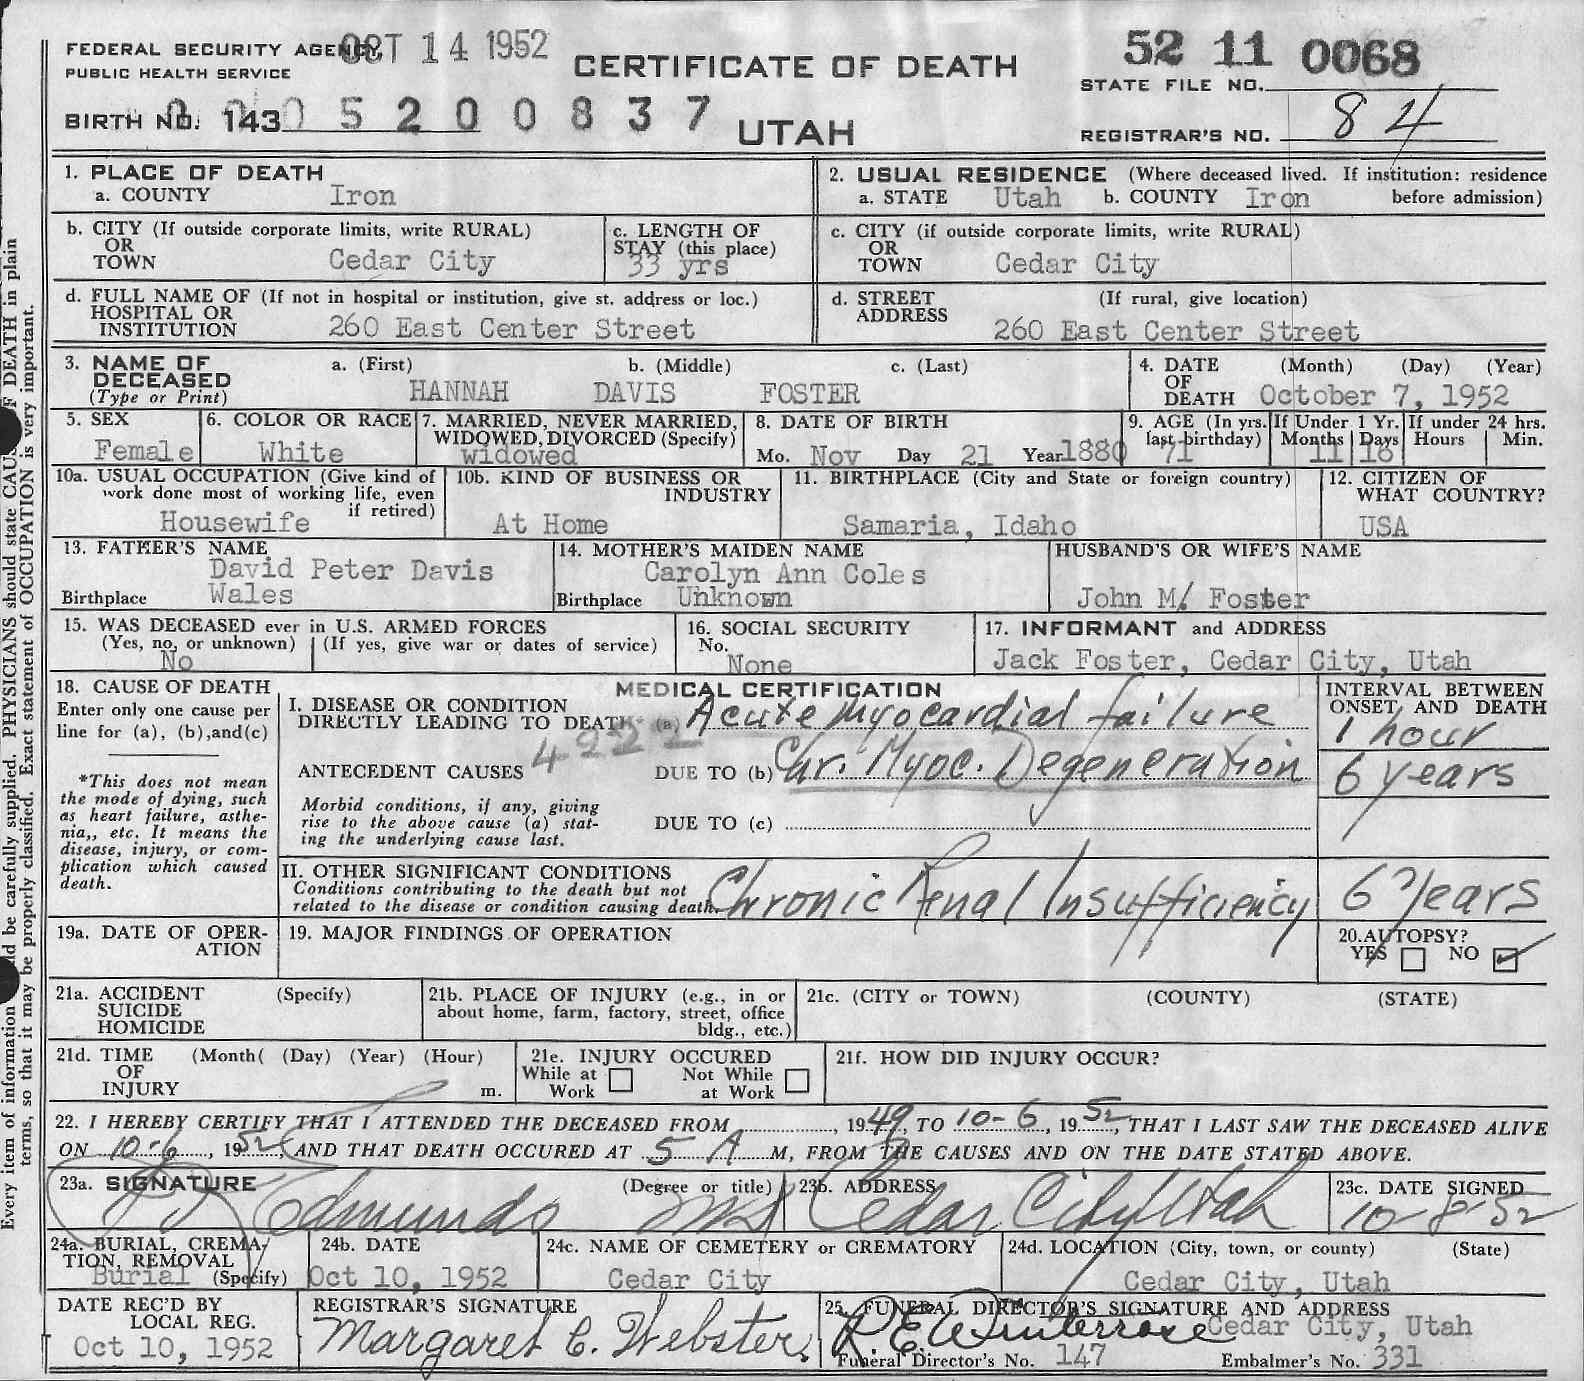 FEDERAL SECURITY AGENCY OCT 14 1952
PUBLIC HEALTH SERVICE
CERTIFICATE OF DEATH
UTAH
52 11 0068
STATE FILE NO.
BIRTH NO. 143 0 5 2 0 0 8 3 7
REGISTRAR'S NO. 84
1. PLACE OF DEATH
a. COUNTY Iron
2. USUAL RESIDENCE (Where deceased lived. If institution: residence
a. STATE Utah b. COUNTY Iron before admission)
b. CITY (If outside corporate limits, write RURAL)
OR
TOWN Cedar City
c. LENGTH OF
STAY (this place)
33 yrs
c. CITY (if outside corporate limits, write RURAL)
OR
TOWN Cedar City
d. FULL NAME OF (If not in hospital or institution, give st. address or loc.)
HOSPITAL OR
INSTITUTION 260 East Center Street
d. STREET (If rural, give location)
ADDRESS
260 East Center Street
3. NAME OF a. (First) b. (Middle) c. (Last)
DECEASED
(Type or Print) HANNAH DAVIS FOSTER
4. DATE (Month) (Day) (Year)
OF
DEATH October 7, 1952
5. SEX
Female
6. COLOR OR RACE
White
7. MARRIED, NEVER MARRIED,
WIDOWED, DIVORCED (Specify)
widowed
8. DATE OF BIRTH
Mo. Nov Day 21 Year 1880
9. AGE (In yrs.
last birthday)
71
If Under 1 Yr.
Months Days
11 16
If under 24 hrs.
Hours Min.
10a. USUAL OCCUPATION (Give kind of
work done most of working life, even
if retired)
Housewife
10b. KIND OF BUSINESS OR
INDUSTRY
At Home
11. BIRTHPLACE (City and State or foreign country)
Samaria, Idaho
12. CITIZEN OF
WHAT COUNTRY?
USA
13. FATHER'S NAME
David Peter Davis
Birthplace Wales
14. MOTHER'S MAIDEN NAME
Carolyn Ann Coles
Birthplace Unknown
HUSBAND'S OR WIFE'S NAME
John M. Foster
15. WAS DECEASED ever in U.S. ARMED FORCES
(Yes, no, or unknown) (If yes, give war or dates of service)
No
16. SOCIAL SECURITY
No.
None
17. INFORMANT and ADDRESS
Jack Foster, Cedar City, Utah
18. CAUSE OF DEATH
Enter only one cause per
line for (a), (b), and (c)
*This does not mean
the mode of dying, such
as heart failure, asthe-
nia,, etc. It means the
disease, injury, or com-
plication which caused
death.
MEDICAL CERTIFICATION
I. DISEASE OR CONDITION
DIRECTLY LEADING TO DEATH* (a) Acute Myocardial failure
4222
ANTECEDENT CAUSES DUE TO (b) Chr. Myoc. Degeneration
Morbid conditions, if any, giving
rise to the above cause (a) stat-
ing the underlying cause last.
DUE TO (c)
INTERVAL BETWEEN
ONSET AND DEATH
1 hour
6 years
II. OTHER SIGNIFICANT CONDITIONS
Conditions contributing to the death but not
related to the disease or condition causing death. Chronic Renal Insufficiency
6 years
19a. DATE OF OPER-
ATION
19. MAJOR FINDINGS OF OPERATION
20. AUTOPSY?
YES NO
21a. ACCIDENT (Specify)
SUICIDE
HOMICIDE
21b. PLACE OF INJURY (e.g., in or
about home, farm, factory, street, office
bldg., etc.)
21c. (CITY or TOWN) (COUNTY) (STATE)
21d. TIME (Month( (Day) (Year) (Hour)
OF
INJURY m.
21e. INJURY OCCURED
While at Not While
Work at Work
21f. HOW DID INJURY OCCUR?
22. I HEREBY CERTIFY THAT I ATTENDED THE DECEASED FROM , 1949, TO 10-6, 1952, THAT I LAST SAW THE DECEASED ALIVE
ON 10-6, 1952, AND THAT DEATH OCCURED AT 5 A M, FROM THE CAUSES AND ON THE DATE STATED ABOVE.
23a. SIGNATURE (Degree or title)
Edmunds MD
23b. ADDRESS
Cedar City Utah
23c. DATE SIGNED
10-8-52
24a. BURIAL, CREMA-
TION, REMOVAL
Burial (Specify)
24b. DATE
Oct 10, 1952
24c. NAME OF CEMETERY or CREMATORY
Cedar City
24d. LOCATION (City, town, or county) (State)
Cedar City, Utah
DATE REC'D BY
LOCAL REG.
Oct 10, 1952
REGISTRAR'S SIGNATURE
Margaret C. Webster.
25. FUNERAL DIRECTOR'S SIGNATURE AND ADDRESS
R E Winterrose Cedar City, Utah
Funeral Director's No. 147 Embalmer's No. 331
Every item of information be carefully supplied. PHYSICIANS should state CAUS F DEATH in plain
terms, so that it may be properly classified. Exact statement of OCCUPATION is very important.